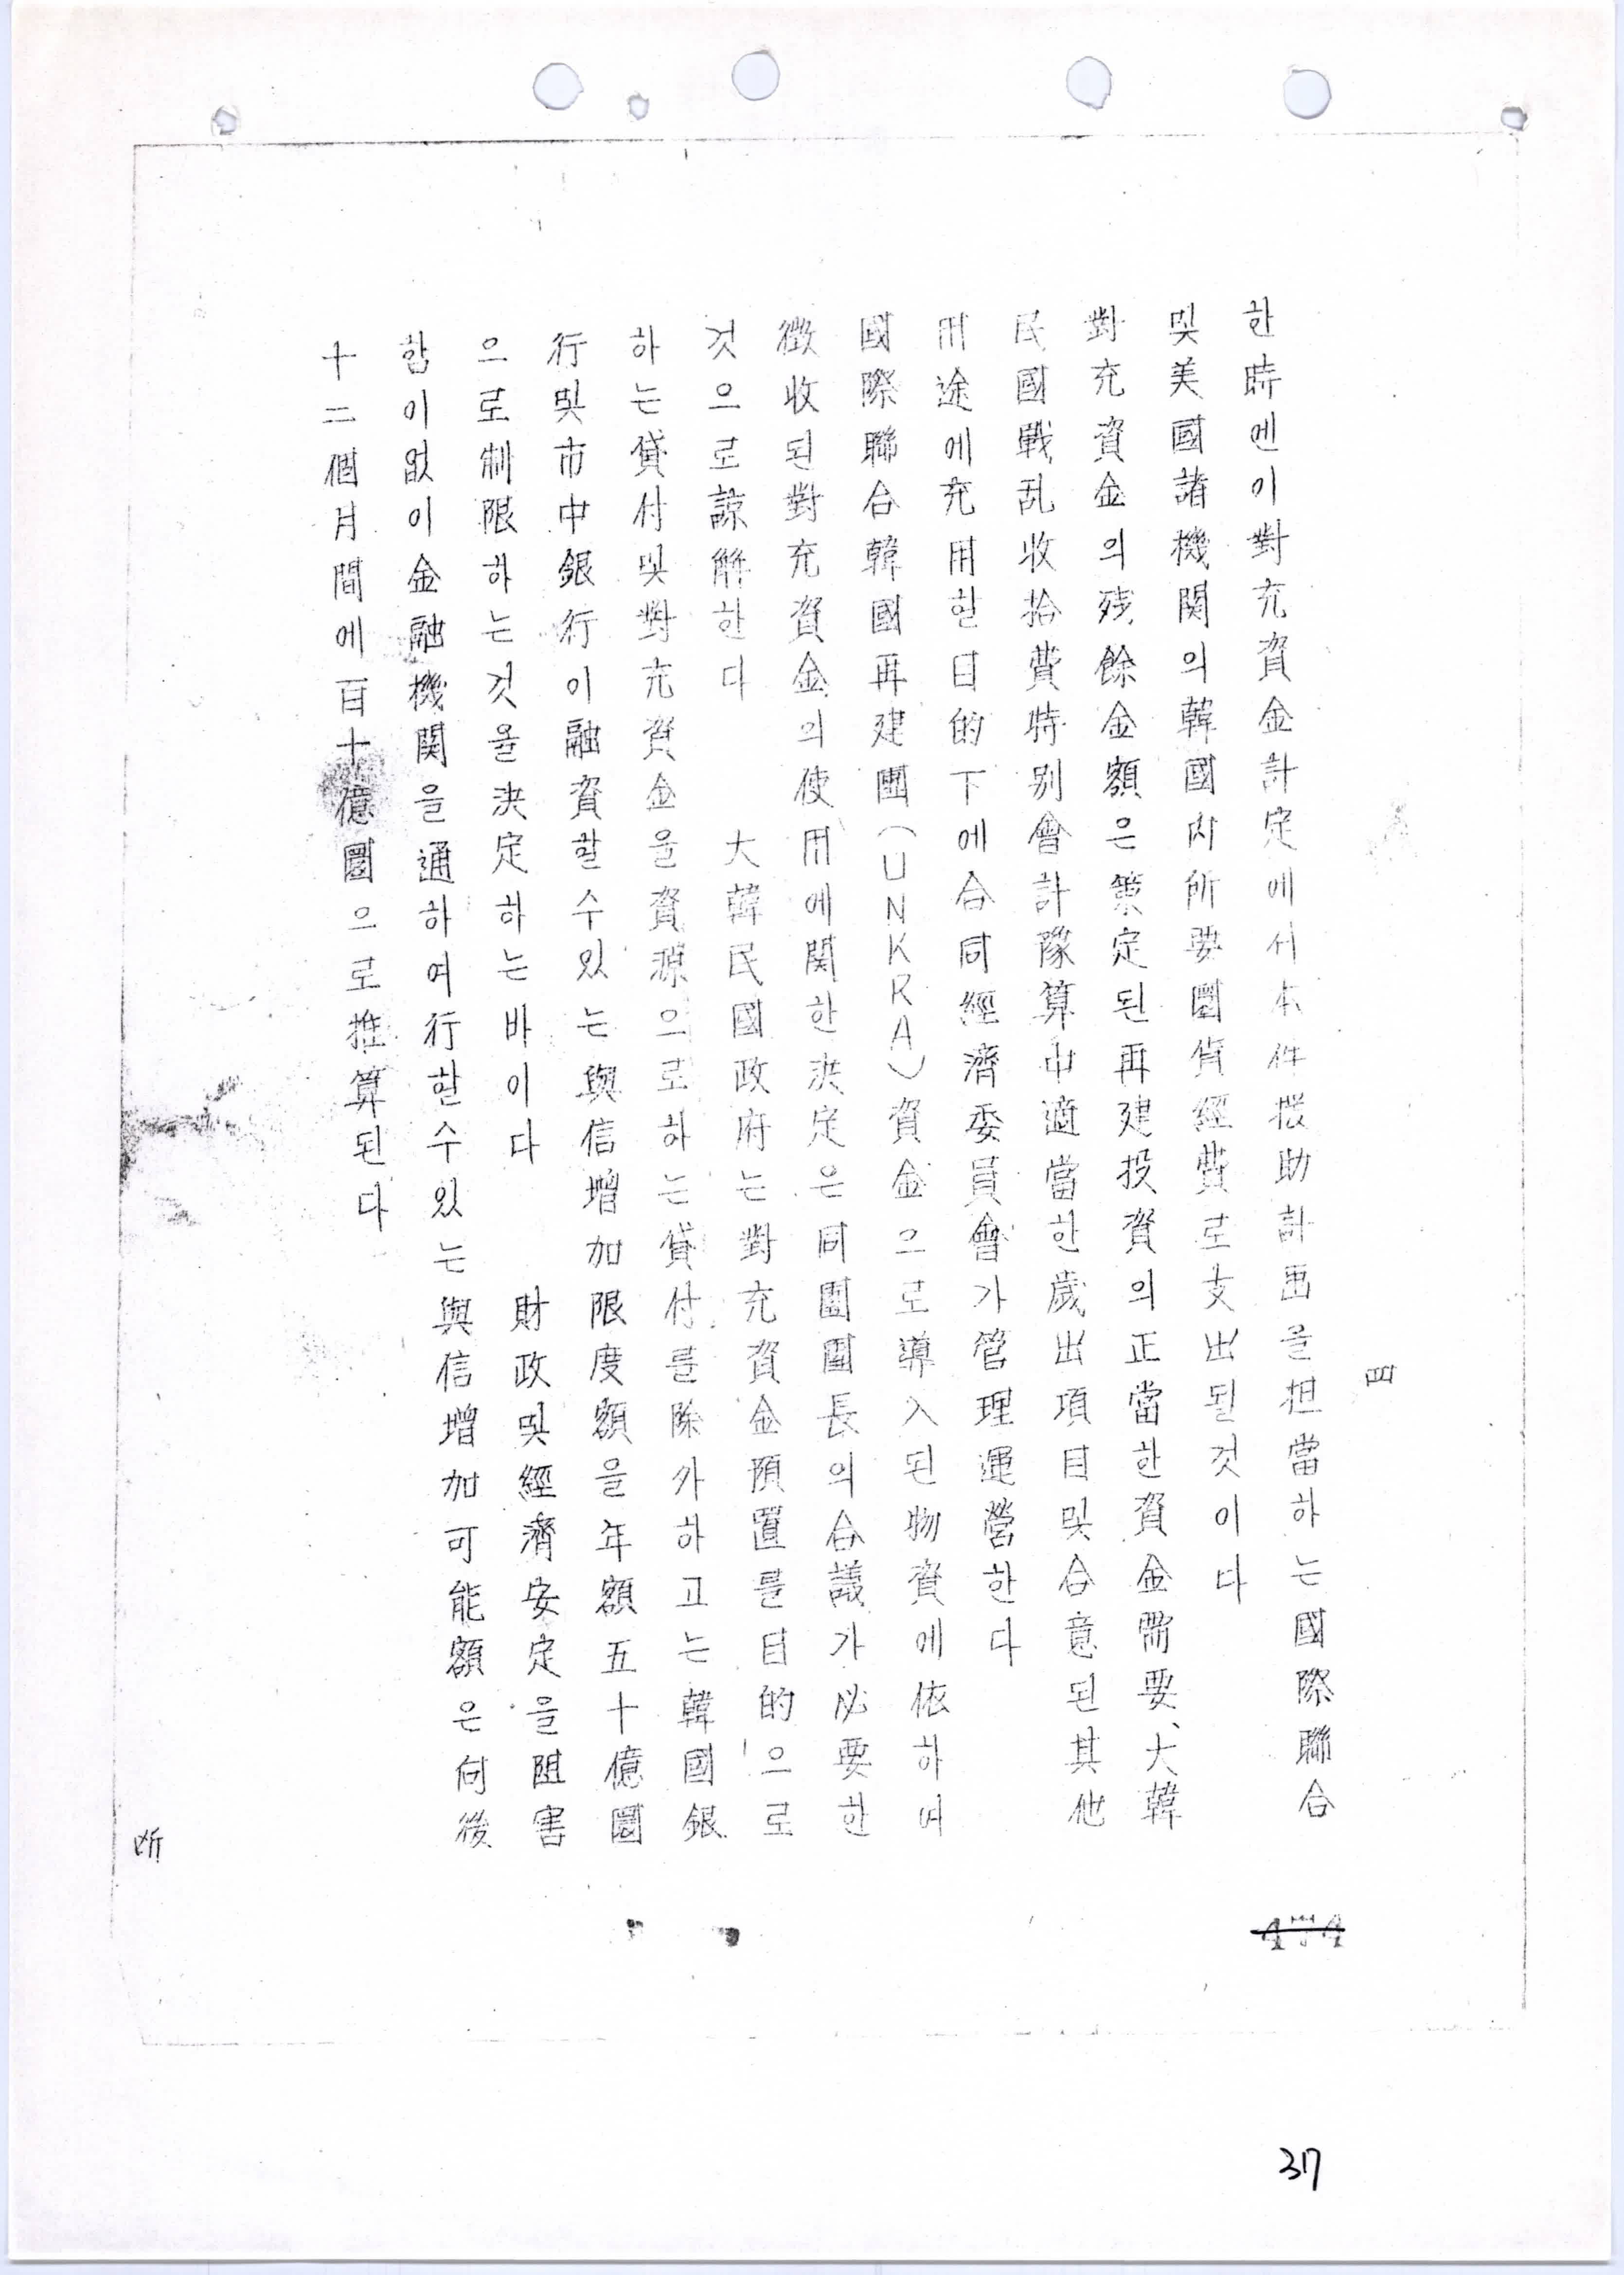 四
한時엔이對充資金計定에서本件援助計画을担當하는國際聯合
및美國諸機関의韓國內所要圜貨經費로支出될것이다
對充資金의残餘金額은策定된再建投資의正當한資金需要、大韓
民國戰乱收拾費特别會計豫算中適當한歲出項目및合意된其他
用途에充用할目的下에合同經濟委員會가管理運營한다
國際聯合韓國再建團(UNKRA)資金으로導入된物資에依하여
徵收된對充資金의使用에関한决定은同團團長의合議가必要한
것으로諒解한다 大韓民國政府는對充資金預置를目的으로
하는貸付및對充資金을資源으로하는貸付를除外하고는韓國銀
行및市中銀行이融資할수있는與信增加限度額을年額五十億圜
으로制限하는것을决定하는바이다 財政및經濟安定을阻害
함이없이金融機関을通하여行할수있는與信增加可能額은向後
十二個月間에百十億圜으로推算된다
37